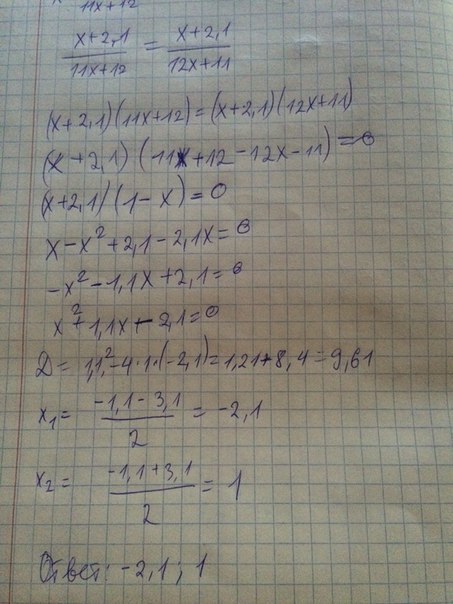 11x+12
x+2,1 / 11x+12 = x+2,1 / 12x+11
(x+2,1)(11x+12)=(x+2,1)(12x+11)
(x+2,1)(11x+12-12x-11)=0
(x+2,1)(1-x)=0
x-x²+2,1-2,1x=0
-x²-1,1x+2,1=0
x²+1,1x-2,1=0
D= 1,1²-4·1·(-2,1)=1,21+8,4=9,61
x₁= -1,1-3,1 / 2 = -2,1
x₂= -1,1+3,1 / 2 = 1
Ответ: -2,1; 1